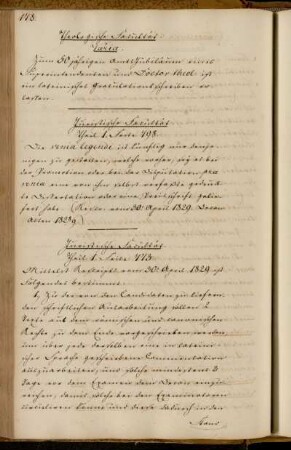 178.
Theologische Facultät
Varia.
Zum 50 jährigen Amtsjubiläum eines
Superintendenten und Doctor theol. ist
ein lateinisches Gratulationsschreiben er-
lassen.
Juristische Facultät
Theil 1. Seite 498.
Die venia legendi ist künftig nur demje-
nigen zu gestatten, welcher vorher, sei es bei
der Promotion oder bei der Disputation pro
venia eine von ihm selbst verfaßte gedruck-
te Dissertation oder eine Streitschrift gelie-
fert hat. (Rescr. vom 30. April 1829. Decan.
Acten 1829.)
Juristische Facultät
Theil 1. Seite 473.
Mittelst Rescripts vom 30. April 1829 ist
Folgendes bestimmt:
1, Zu der von den Candidaten zu liefern-
den schriftlichen Ausarbeitung sollen 2
Texte aus dem römischen und canonischen
Rechte zu dem Ende vorgeschrieben werden,
um über jede derselben eine in lateini-
scher Sprache geschriebene Commentation
auszuarbeiten, und solche mindestens 8
Tage vor dem Examen dem Decan einzu-
reichen, damit solche bei den Examinatoren
circuliren kann und diese dadurch in den
Stand